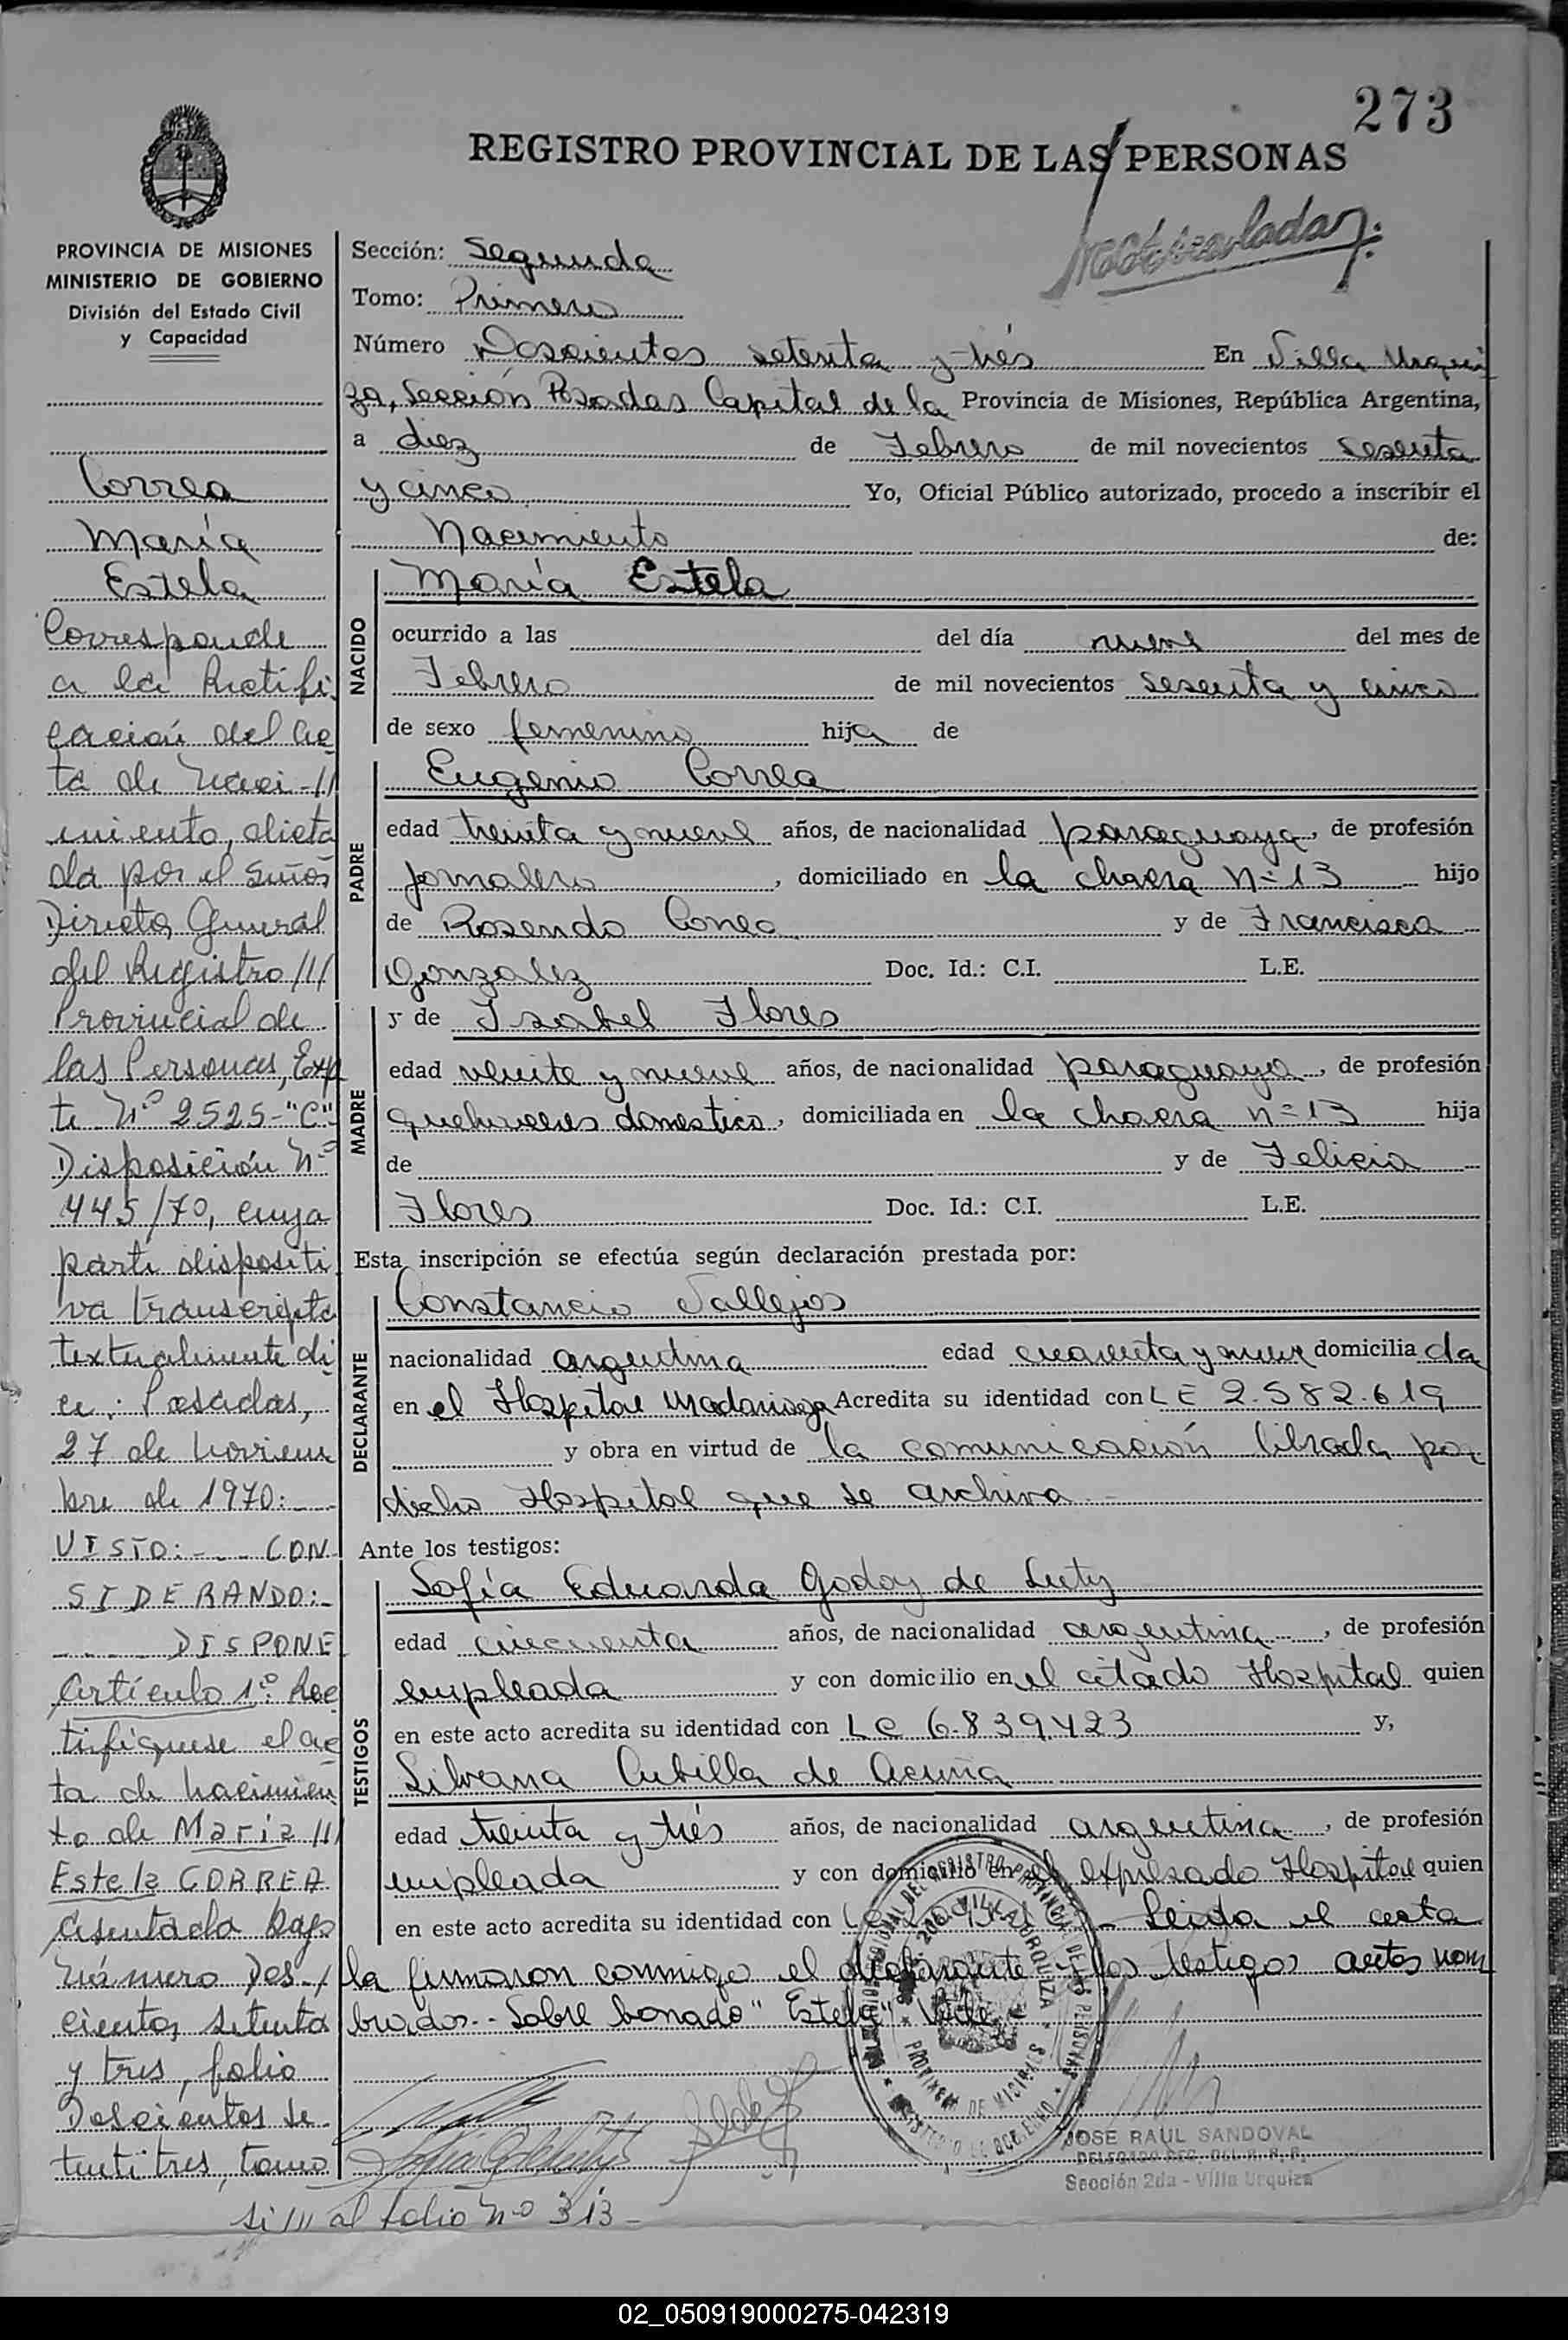 273
REGISTRO PROVINCIAL DE LAS PERSONAS
PROVINCIA DE MISIONES
MINISTERIO DE GOBIERNO
División del Estado Civil
y Capacidad
Correa
María
Estela
Corresponde
a la Rectifi
cación del ac
ta de naci-//
miento, dicta
da por el Señor
Director General
del Registro ///
Provincial de
las Personas, Exp
te Nº 2525-"C"-
Disposición Nº
445/70, cuya
parte dispositi
va transcripta
textualmente di
ce: Posadas,
27 de noviem
bre de 1970:
VISTO: - - - CON
SIDERANDO:-
- - - DISPONE
Artículo 1º: Rec
tifíquese el ac
ta de nacimien
to de María ///
Estela CORREA
asentada bajo
número Dos-/
cientos setenta
y tres, folio
Doscientos se
tentitres, tomo
Sección: Segunda
Tomo: Primero
Número Doscientos setenta y trés En Villa Urqui
za, Sección Posadas Capital de la Provincia de Misiones, República Argentina,
a diez de Febrero de mil novecientos sesenta
y cinco Yo, Oficial Público autorizado, procedo a inscribir el
Nacimiento de:
NACIDO
María Estela
ocurrido a las del día nueve del mes de
Febrero de mil novecientos sesenta y cinco
de sexo femenino hija de
PADRE
Eugenio Correa
edad treinta y nueve años, de nacionalidad paraguaya, de profesión
jornalero, domiciliado en la chacra nº 13 hijo
de Rosendo Correa y de Francisca
Gonzalez Doc. Id.: C.I. L.E.
MADRE
y de Isabel Flores
edad veinte y nueve años, de nacionalidad paraguaya, de profesión
quehaceres domestico, domiciliada en la chacra nº 13 hija
de y de Felicia
Flores Doc. Id.: C.I. L.E.
Esta inscripción se efectúa según declaración prestada por:
DECLARANTE
Constancio Vallejos
nacionalidad argentina edad cuarenta y nueve domiciliada
en el Hospital Madariaga Acredita su identidad con LE 2.582.619
y obra en virtud de la comunicación librada por
dicho Hospital que se archiva
Ante los testigos:
TESTIGOS
Sofía Eduarda Godoy de
edad cincuenta años, de nacionalidad argentina, de profesión
empleada y con domicilio en el citado Hospital quien
en este acto acredita su identidad con LC 6.839.423 y,
Silvana Cubilla de Acuña
edad treinta y trés años, de nacionalidad argentina, de profesión
empleada y con domicilio en el expresado Hospital quien
en este acto acredita su identidad con Leida el acta
la firmaron conmigo el declarante y los testigos antes nom
brados.- Sobre borrado "Estela" Vale.-
JOSE RAUL SANDOVAL
DELEGADO SEC. DEL R. P. P.
Sección 2da - Villa Urquiza
al folio Nº 313-
02_050919000275-042319